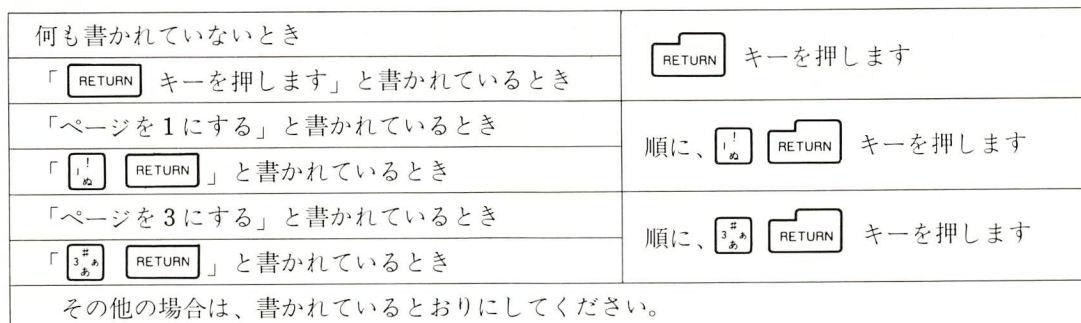 何も書かれていないとき
RETURN キーを押します
「 RETURN キーを押します」と書かれているとき
「ページを1にする」と書かれているとき
順に、 1 ! ぬ RETURN キーを押します
「 1 ! ぬ RETURN 」と書かれているとき
「ページを3にする」と書かれているとき
順に、 3 # ぁ あ RETURN キーを押します
「 3 # ぁ あ RETURN 」と書かれているとき
その他の場合は、書かれているとおりにしてください。